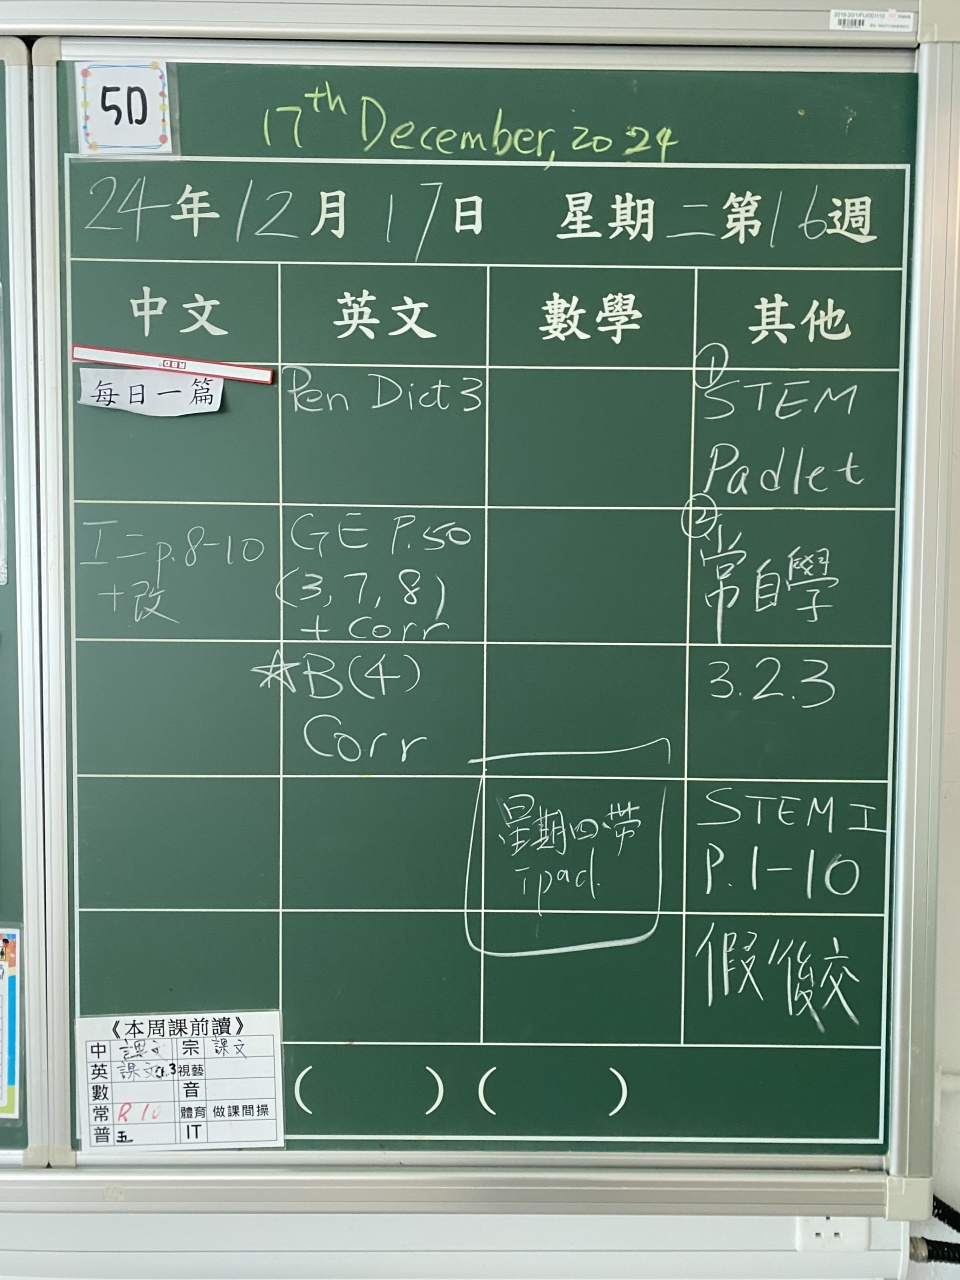 5D
17th December, 2024
24年12月17日 星期二第16週
中文 英文 數學 其他
每日一篇
Pen Dict 3
①
STEM
Padlet
工二p.8-10
+改
GE P.50
(3,7,8)
+ Corr
②
常自學
☆B(4)
Corr
3.2.3
星期四帶
ipad.
STEM工
P.1-10
假後交
《本周課前讀》
中 課文 宗 課文
英 課文ch.3 視藝
數 音
常 R10 體育 做課間操
普 五 IT
( ) ( )